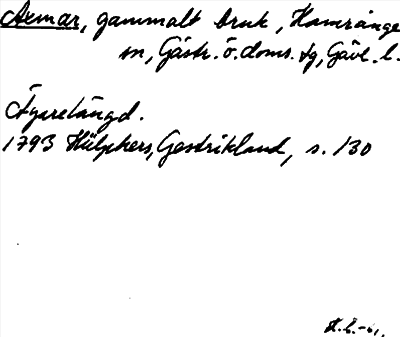 Axmar, gammalt bruk, Hamrånge
sn, Gästr. ö. doms. tg, Gävl. l.
Ägaretängd.
1793 Hülphers, Gestrikland, s. 130